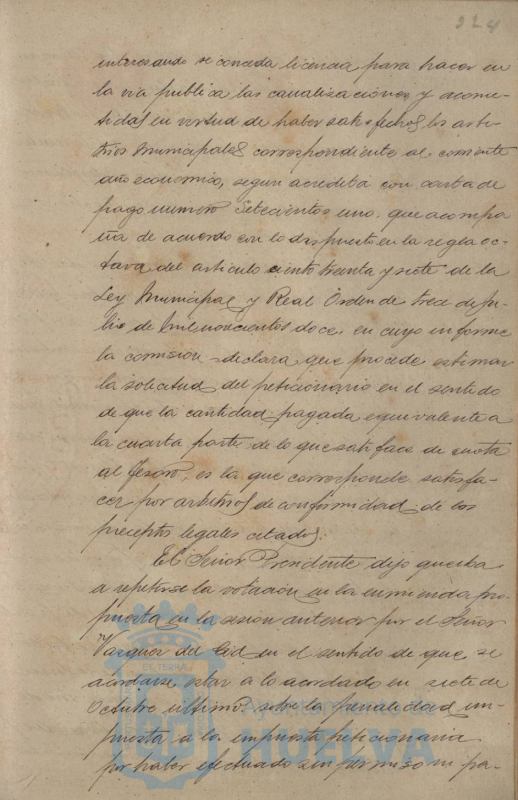 224
interesando se conceda licencia para hacer en
la via publica las canalizaciónes y acome-
tidas en virtud de haber satisfecho los arbi-
trios municipales correspondiente al corriente
año economico, segun acredita con carta de
pago numero Setecientos uno, que acompa
ña de acuerdo con lo dispuesto en la regla oc-
tava del articulo ciento treinta y siete de la
Ley Municipal y Real Orden de trece de Ju-
lio de mil novecientos doce, en cuyo informe
la comision declara que procede estimar
la solicitud del peticionario en el sentido
de que la cantidad pagada equivalente a
la cuarta parte de lo que satisface de cuota
al Tesoro, es la que corresponde satisfa-
cer por arbitrios de conformidad de los
preceptos legales citados.
El Señor Presidente dijo que iba
a repetirse la votación en la enmienda pro-
puesta en la sesion anterior por el Señor
Vazquez del Cid en el sentido de que se
acordase estar a lo acordado en siete de
Octubre ultimo sobre la penalidad im-
puesta a la empresa peticionaria
por haber efectuado sin permiso ni pa-
Ayuntamiento de
HUELVA